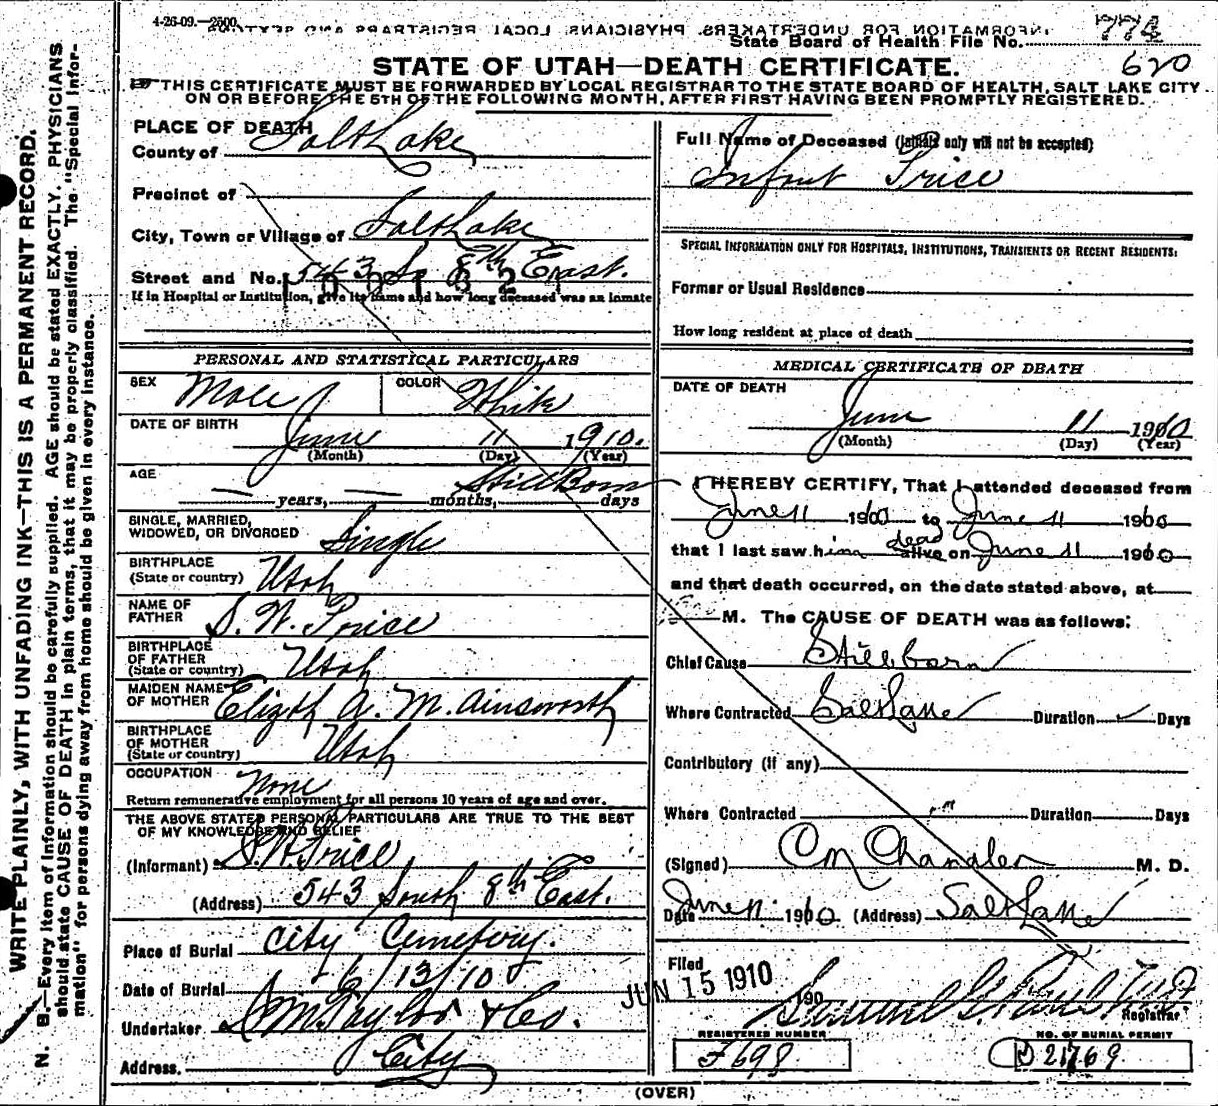 4-26-09.—2500.
INFORMATION FOR UNDERTAKERS, PHYSICIANS, LOCAL REGISTRARS AND SEXTONS
State Board of Health File No. 774
620
STATE OF UTAH—DEATH CERTIFICATE.
THIS CERTIFICATE MUST BE FORWARDED BY LOCAL REGISTRAR TO THE STATE BOARD OF HEALTH, SALT LAKE CITY
ON OR BEFORE THE 5TH OF THE FOLLOWING MONTH, AFTER FIRST HAVING BEEN PROMPTLY REGISTERED.
WRITE PLAINLY, WITH UNFADING INK—THIS IS A PERMANENT RECORD.
N. B.—Every item of information should be carefully supplied. AGE should be stated EXACTLY. PHYSICIANS
should state CAUSE OF DEATH in plain terms, that it may be properly classified. The "Special Infor-
mation" for persons dying away from home should be given in every instance.
PLACE OF DEATH
County of Salt Lake
Precinct of
City, Town or Village of Salt Lake
Street and No. 543 So 8th East.
If in Hospital or Institution, give its name and how long deceased was an inmate
PERSONAL AND STATISTICAL PARTICULARS
SEX Male COLOR White
DATE OF BIRTH June 11 1910.
(Month) (Day) (Year)
AGE — years, — months, Still Born days
SINGLE, MARRIED,
WIDOWED, OR DIVORCED Single
BIRTHPLACE
(State or country) Utah
NAME OF
FATHER S. W. Price
BIRTHPLACE
OF FATHER
(State or country) Utah
MAIDEN NAME
OF MOTHER Elizth A. M. Ainsworth
BIRTHPLACE
OF MOTHER
(State or country) Utah
OCCUPATION None
Return remunerative employment for all persons 10 years of age and over.
THE ABOVE STATED PERSONAL PARTICULARS ARE TRUE TO THE BEST
OF MY KNOWLEDGE AND BELIEF
(Informant) S. W. Price
(Address) 543 South 8th East.
Place of Burial City Cemetery.
Date of Burial 6/13/10
Undertaker S. M. Taylor & Co.
Address. City
Full Name of Deceased (Initials only will not be accepted)
Infant Price
SPECIAL INFORMATION ONLY FOR HOSPITALS, INSTITUTIONS, TRANSIENTS OR RECENT RESIDENTS:
Former or Usual Residence
How long resident at place of death
MEDICAL CERTIFICATE OF DEATH
DATE OF DEATH
June 11 1910
(Month) (Day) (Year)
I HEREBY CERTIFY, That I attended deceased from
June 11 1910 to June 11 1910
that I last saw him dead alive on June 11 1910
and that death occurred, on the date stated above, at
M. The CAUSE OF DEATH was as follows:
Chief Cause Stillborn
Where Contracted Salt Lake Duration Days
Contributory (if any)
Where Contracted Duration Days
(Signed) C M Chandler M. D.
Date June 11 1910 (Address) Salt Lake
Filed JUN 15 1910 190
Samuel G. Paul Registrar
REGISTERED NUMBER NO. OF BURIAL PERMIT
F698 D 21769
(OVER)